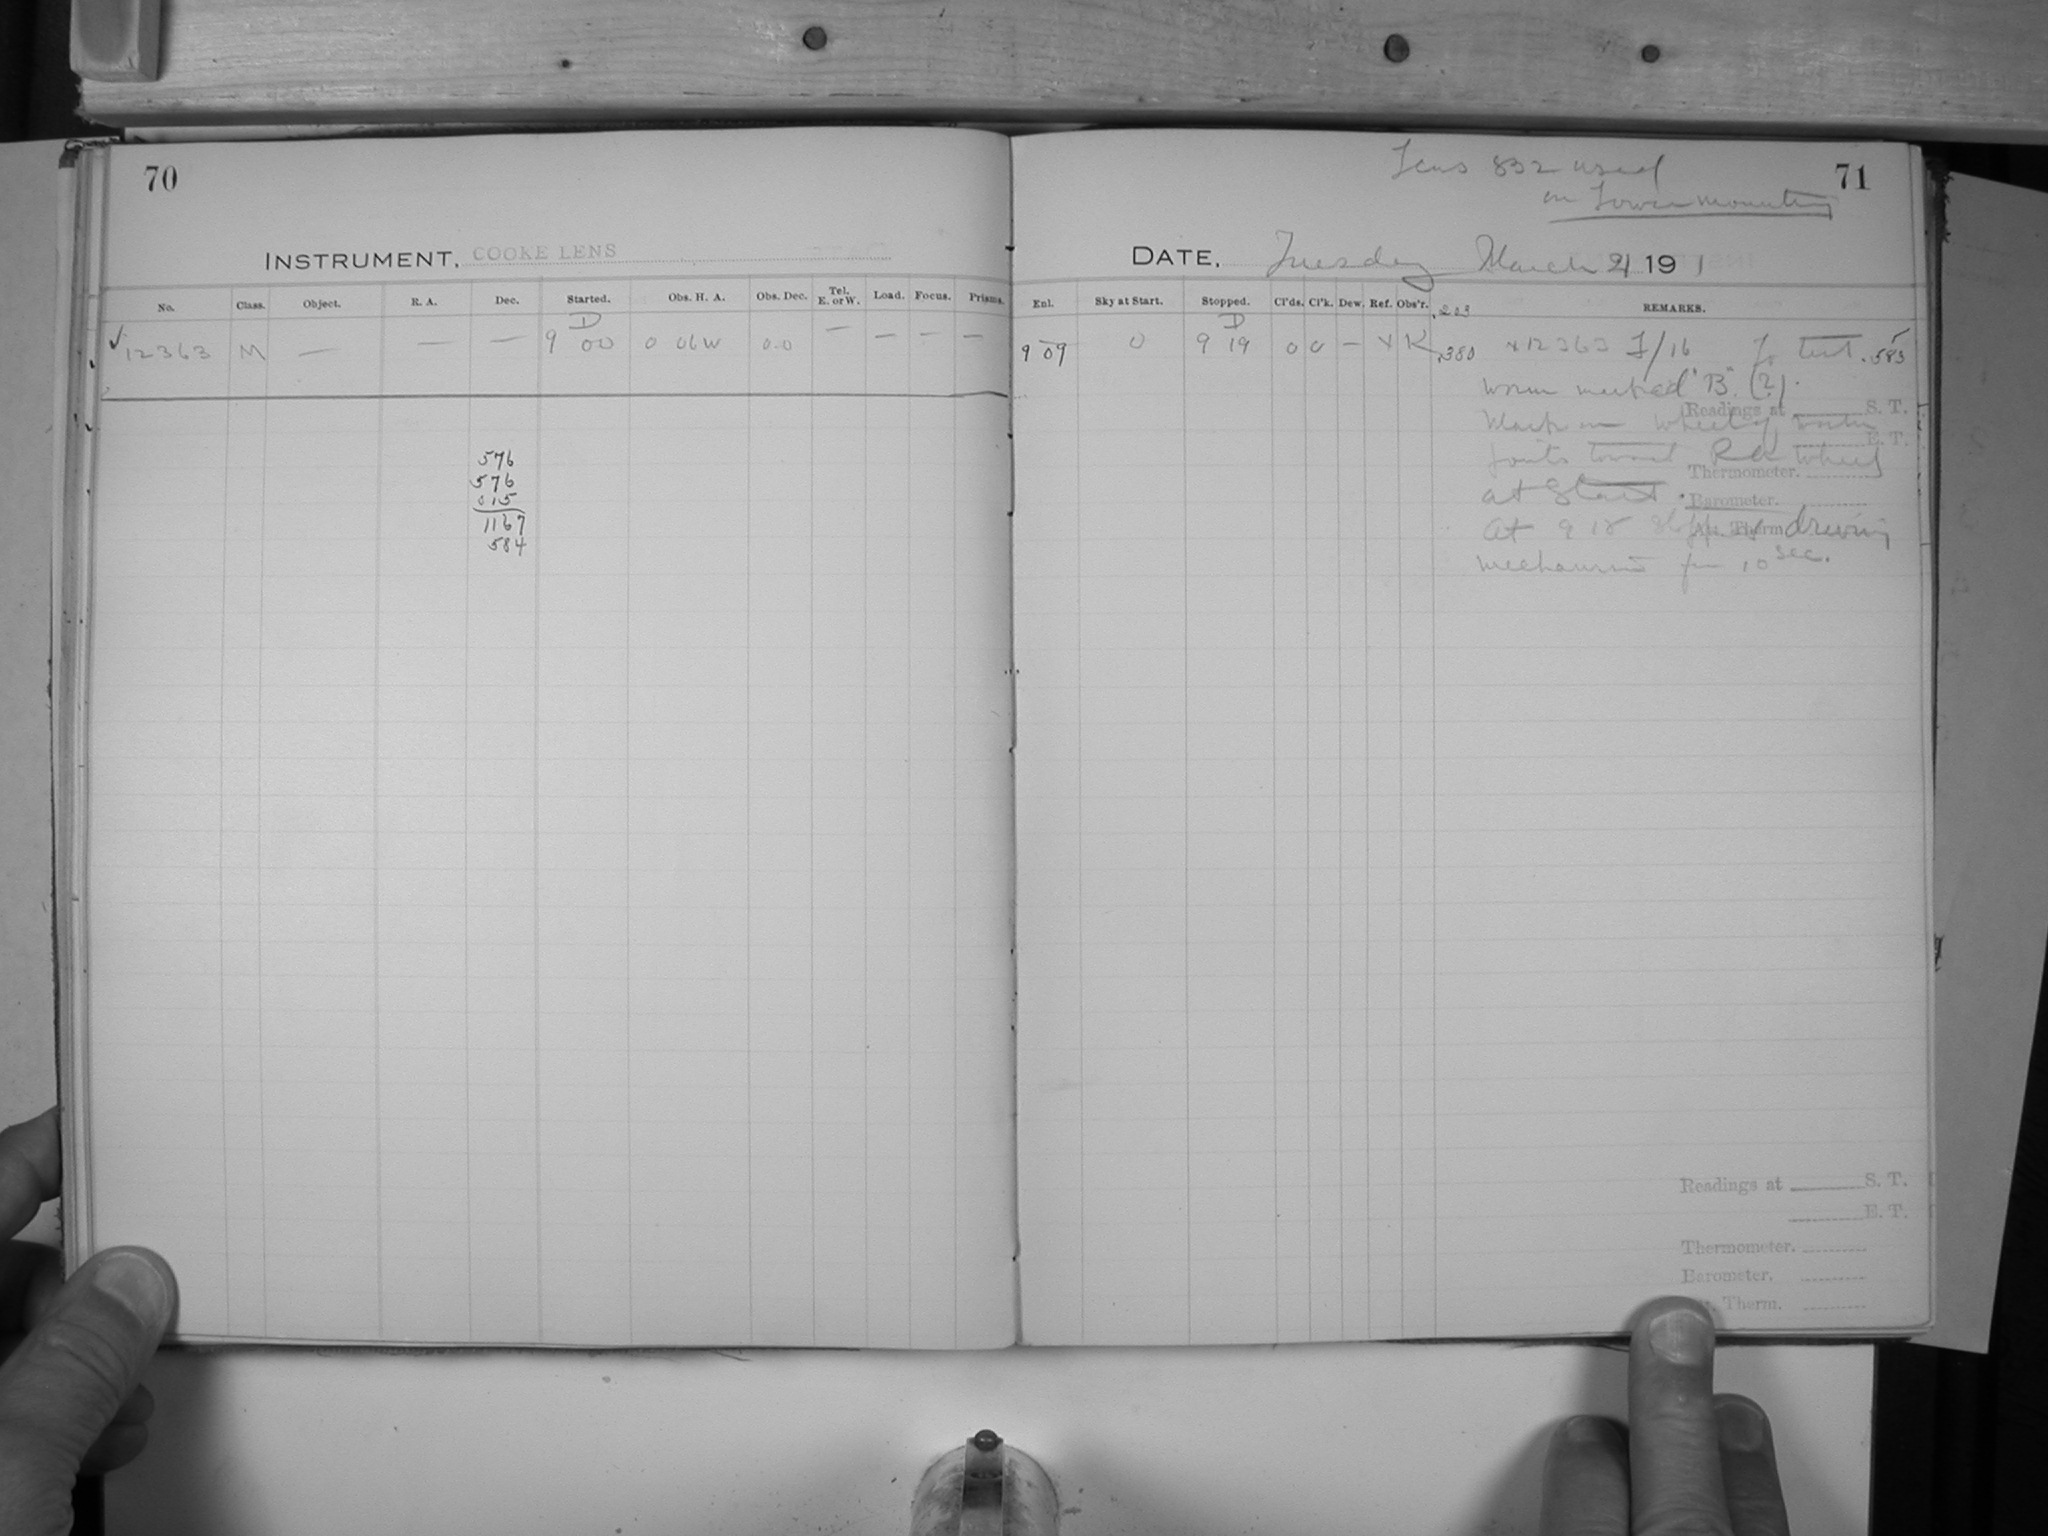 70
INSTRUMENT, COOKE LENS
No. Class. Object. R. A. Dec. Started. Obs. H. A. Obs. Dec. Tel. E. or W. Load. Focus. Prisms.
D
✓ 12363 M — — — 9 00 0 06W 0.0 — — — —
576
576
015
1167
584
Lens 832 used 71
on Tower mounting
DATE, Tuesday March 21 191
Enl. Sky at Start. Stopped. Cl'ds. Cl'k. Dew. Ref. Obs'r. .203 REMARKS.
D
9 09 0 9 19 0 0 — x K .380 x12363 F/16 To test .583
worm marked "B" (?).
Readings at S. T.
Mark on wheel
E. T.
points toward RA wheel
Thermometer.
at Start.
Barometer.
Att. Therm
At 9 18 stopped driving
mechanism for 10 sec.
Readings at S. T.
E. T.
Thermometer.
Barometer.
Therm.